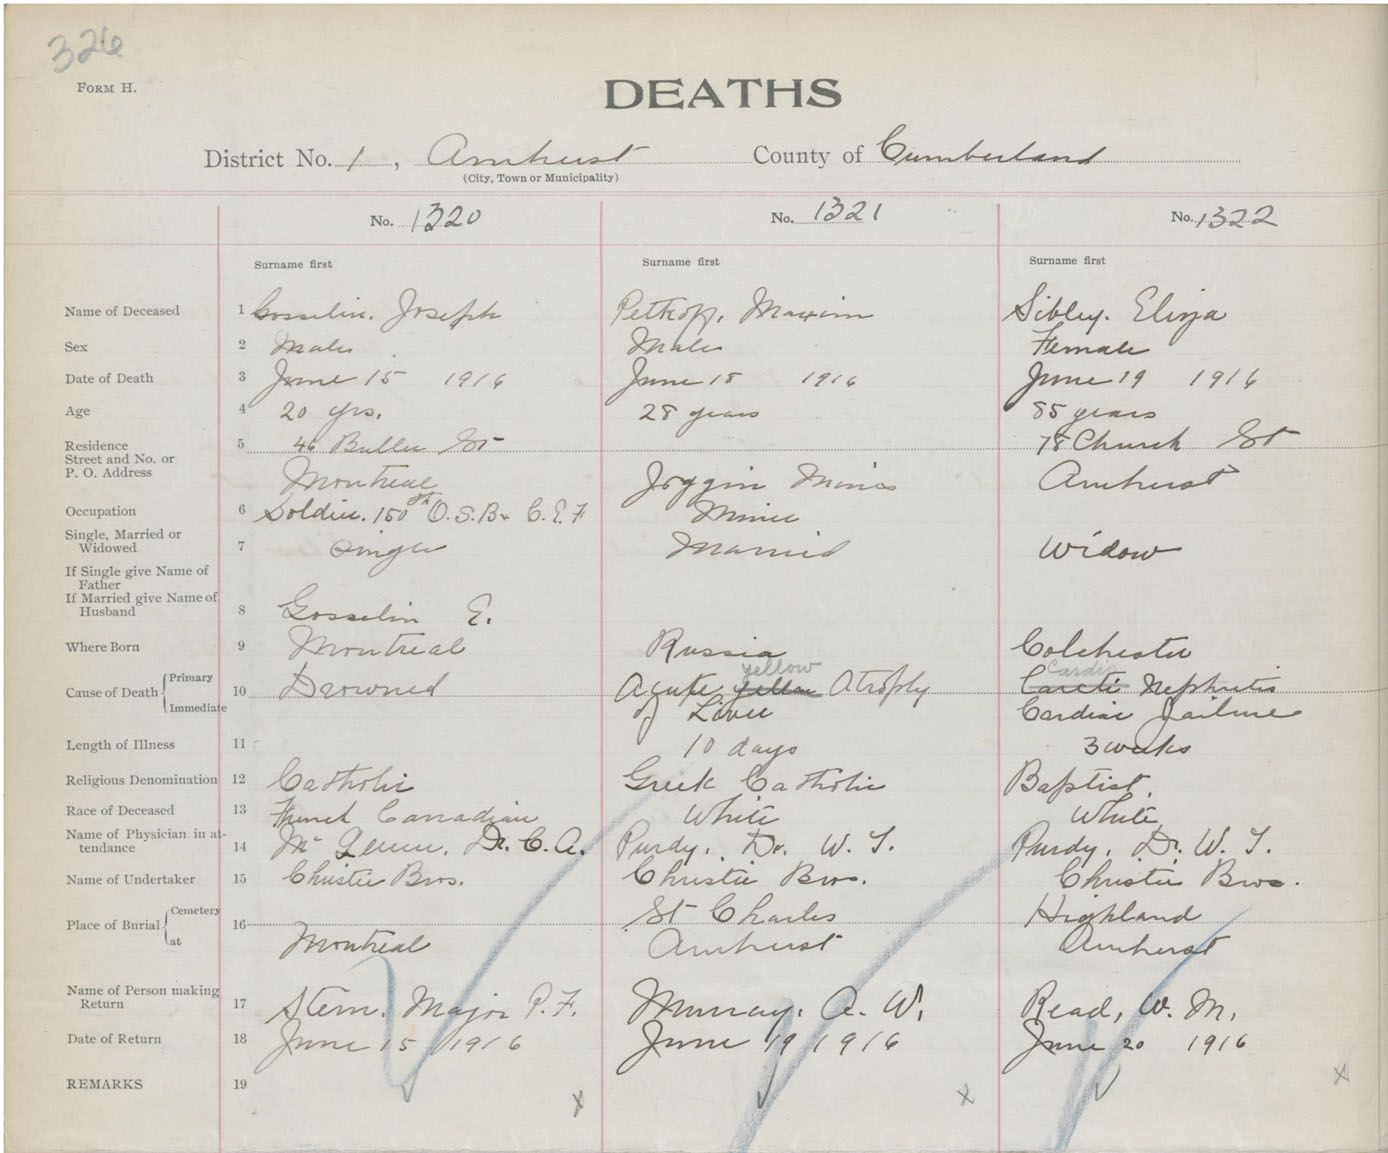 326
FORM H.
DEATHS
District No. 1, Amherst County of Cumberland
(City, Town or Municipality)
No. 1320 No. 1321 No. 1322
Surname first Surname first Surname first
Name of Deceased 1 Gosselin, Joseph Petkoff, Maxim Sibley, Eliza
Sex 2 Male Male Female
Date of Death 3 June 15 1916 June 18 1916 June 19 1916
Age 4 20 yrs. 28 years 85 years
Residence 5 46 St 78 Church St
Street and No. or
P. O. Address Montreal Joggin Mines Amherst
Occupation 6 Soldier. 150th O.S.Bn C.E.F Miner
Single, Married or
Widowed 7 Single Married Widow
If Single give Name of
Father
If Married give Name of
Husband 8 Gosselin E.
Where Born 9 Montreal Russia Colchester
Cause of Death { Primary 10 Drowned Acute yellow yellow Atrophy Cardio Nephritis
Immediate of Liver Cardiac Failure
Length of Illness 11 10 days 3 weeks
Religious Denomination 12 Catholic Greek Catholic Baptist.
Race of Deceased 13 French Canadian White White
Name of Physician in at-
tendance 14 Dr. C. A. Purdy, Dr. W. T. Purdy, Dr. W. T.
Name of Undertaker 15 Christie Bros. Christie Bros. Christie Bros.
Place of Burial { Cemetery 16 St Charles Highland
at Montreal Amherst Amherst
Name of Person making
Return 17 Stern, Major P. F. Murray, A. W. Read, W. M.
Date of Return 18 June 15 1916 June 19 1916 June 20 1916
REMARKS 19 x x x